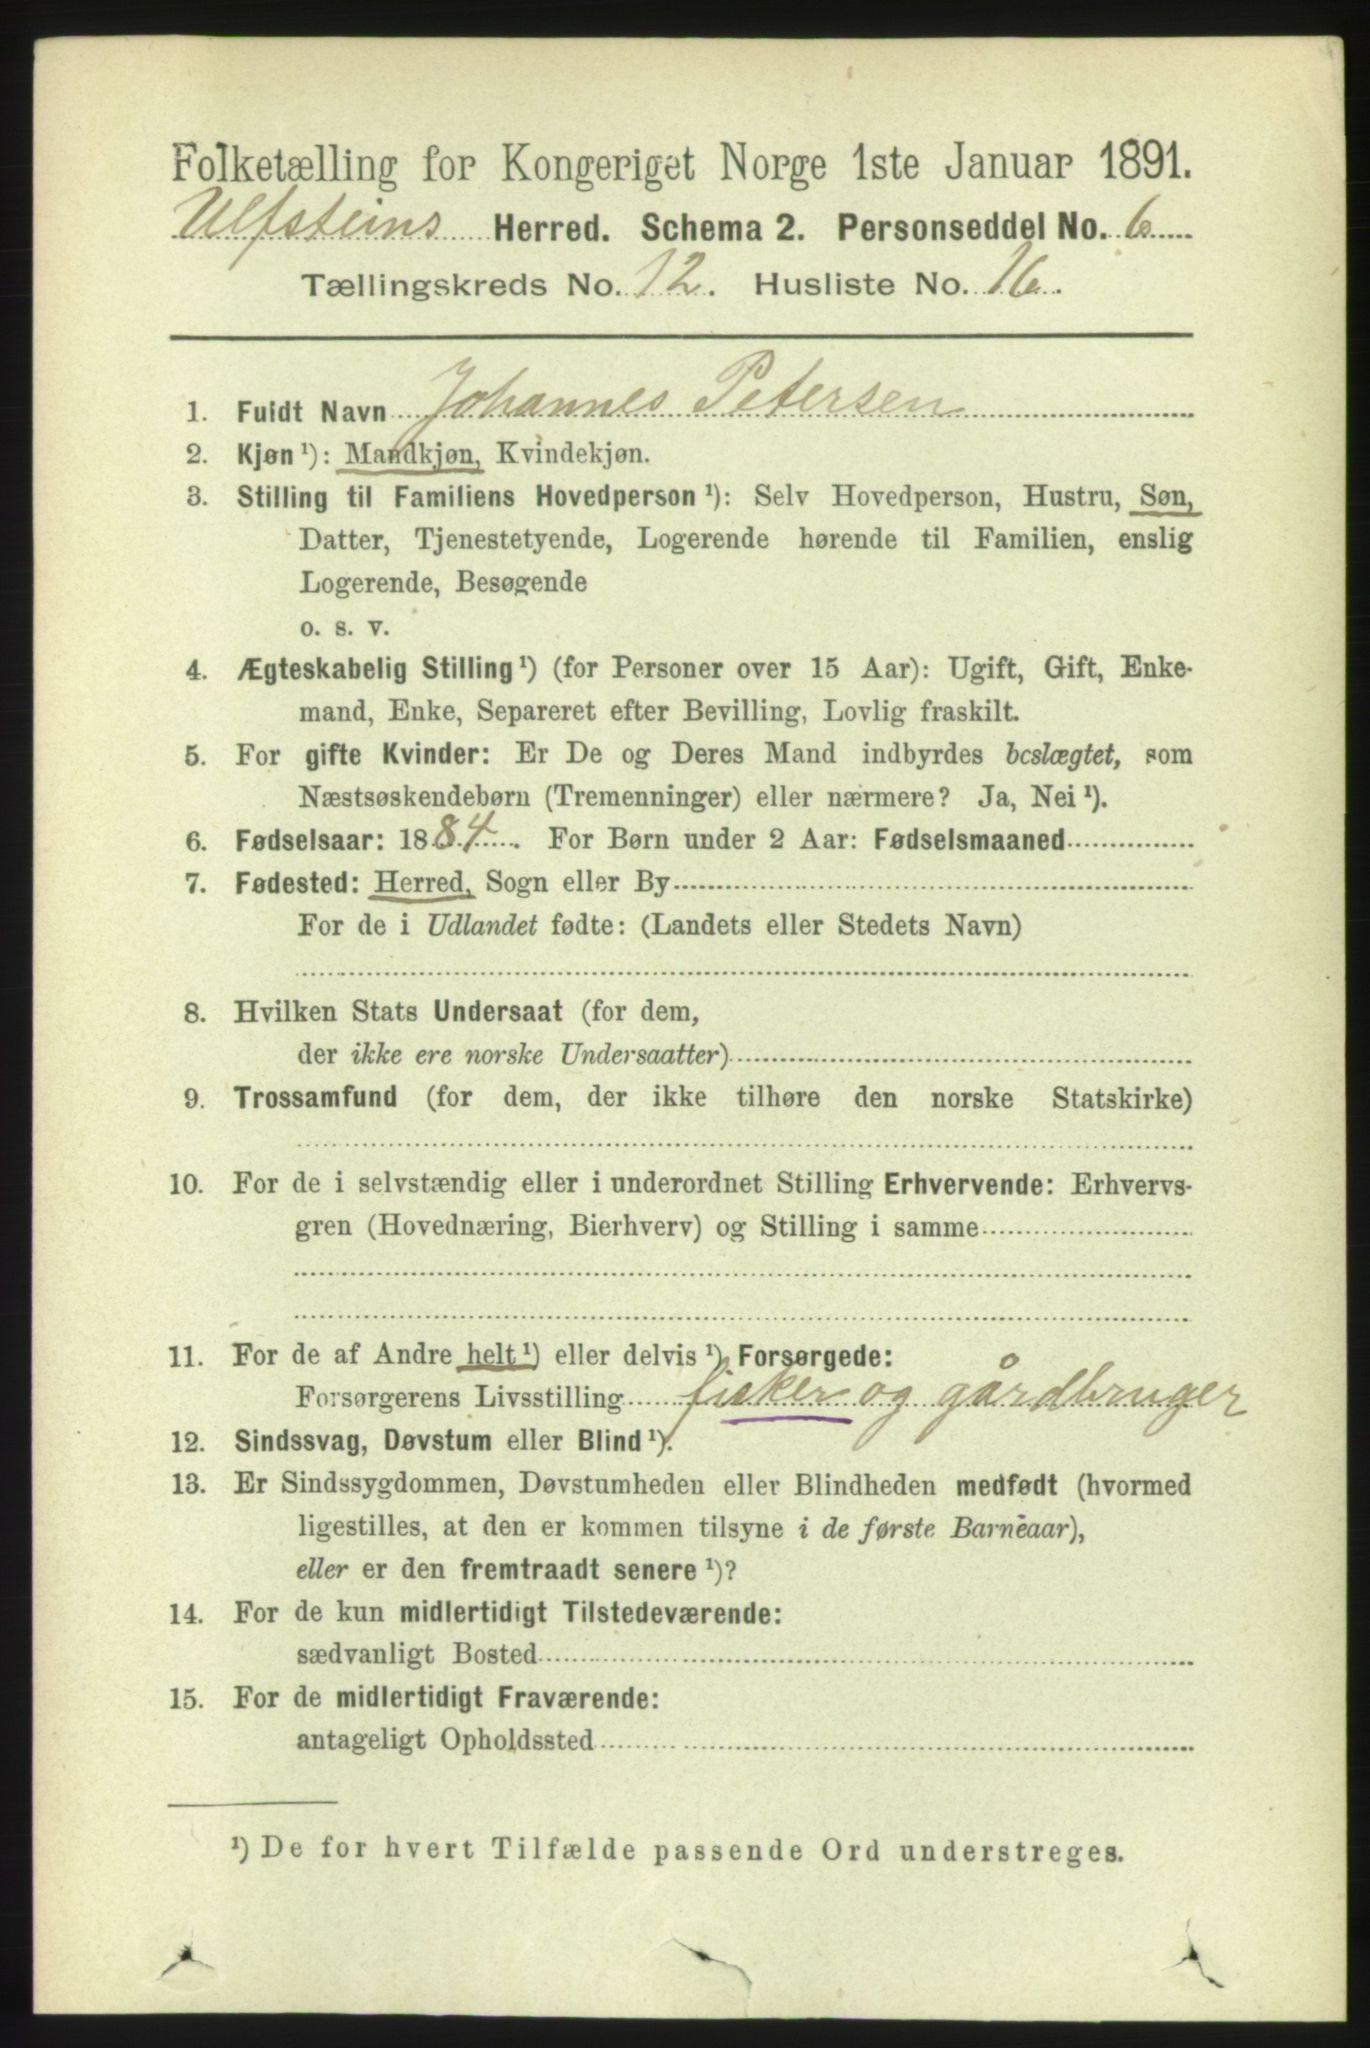 Folketælling for Kongeriget Norge 1ste Januar 1891.
Ulfsteins Herred. Schema 2. Personseddel No. 6
Tællingskreds No. 12. Husliste No. 16.
1. Fuldt Navn Johannes Petersen
2. Kjøn ¹): Mandkjøn, Kvindekjøn.
3. Stilling til Familiens Hovedperson ¹): Selv Hovedperson, Hustru, Søn,
Datter, Tjenestetyende, Logerende hørende til Familien, enslig
Logerende, Besøgende
o. s. v.
4. Ægteskabelig Stilling ¹) (for Personer over 15 Aar): Ugift, Gift, Enke-
mand, Enke, Separeret efter Bevilling, Lovlig fraskilt.
5. For gifte Kvinder: Er De og Deres Mand indbyrdes beslægtet, som
Næstsøskendebørn (Tremenninger) eller nærmere? Ja, Nei ¹).
6. Fødselsaar: 1884. For Børn under 2 Aar: Fødselsmaaned
7. Fødested: Herred, Sogn eller By
For de i Udlandet fødte: (Landets eller Stedets Navn)
8. Hvilken Stats Undersaat (for dem,
der ikke ere norske Undersaatter)
9. Trossamfund (for dem, der ikke tilhøre den norske Statskirke)
10. For de i selvstændig eller i underordnet Stilling Erhvervende: Erhvervs-
gren (Hovednæring, Bierhverv) og Stilling i samme
11. For de af Andre helt ¹) eller delvis ¹) Forsørgede:
Forsørgerens Livsstilling fisker og gårdbruger
12. Sindssvag, Døvstum eller Blind ¹).
13. Er Sindssygdommen, Døvstumheden eller Blindheden medfødt (hvormed
ligestilles, at den er kommen tilsyne i de første Barneaar),
eller er den fremtraadt senere ¹)?
14. For de kun midlertidigt Tilstedeværende:
sædvanligt Bosted
15. For de midlertidigt Fraværende:
antageligt Opholdssted
¹) De for hvert Tilfælde passende Ord understreges.